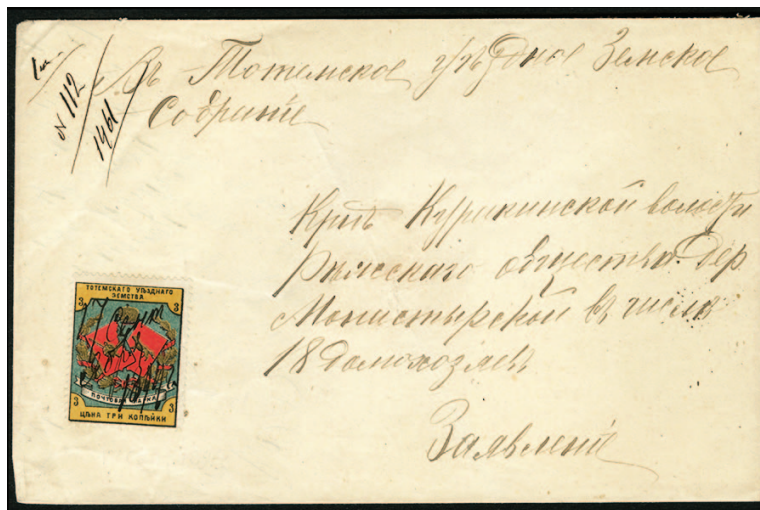 № 112
1461
Въ Тотемское уѣздное Земское
Собранiе
Крнъ Курикинской волости
Рыжскаго общества дер.
Монастырской въ числѣ
18 домохозяевъ
Заявленiе
ТОТЕМСКАГО УѢЗДНАГО
ЗЕМСТВА
3 3
ПОЧТОВАЯ МАРКА
3 3
ЦѢНА ТРИ КОПѢЙКИ